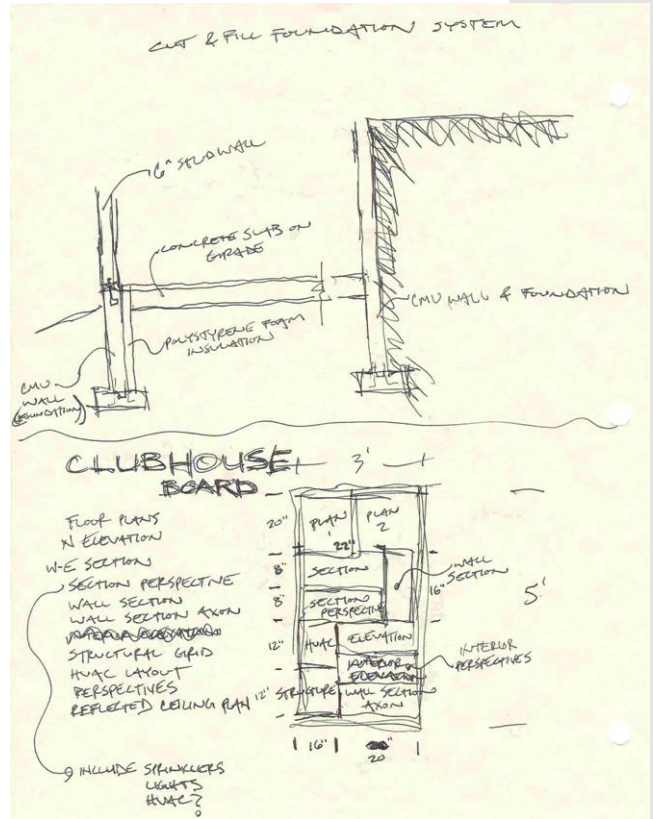 CUT & FILL FOUNDATION SYSTEM
6" STUD WALL
CONCRETE SLAB ON
GRADE
CMU WALL & FOUNDATION
POLYSTYRENE FOAM
INSULATION
CMU
WALL
(FOUNDATION)
CLUBHOUSE
BOARD
3'
FLOOR PLANS
N ELEVATION
W-E SECTION
SECTION PERSPECTIVE
WALL SECTION
WALL SECTION AXON
STRUCTURAL GRID
HVAC LAYOUT
PERSPECTIVES
REFLECTED CEILING PLAN
INCLUDE SPRINKLERS
LIGHTS
HVAC?
20"
PLAN
1
PLAN
2
22"
8"
SECTION
WALL
SECTION
8"
SECTION
PERSPECTIVE
16"
5'
12"
HVAC
ELEVATION
INTERIOR
PERSPECTIVES
INTERIOR
ELEVATION
12"
STRUCTURE
WALL SECTION
AXON
16"
20"